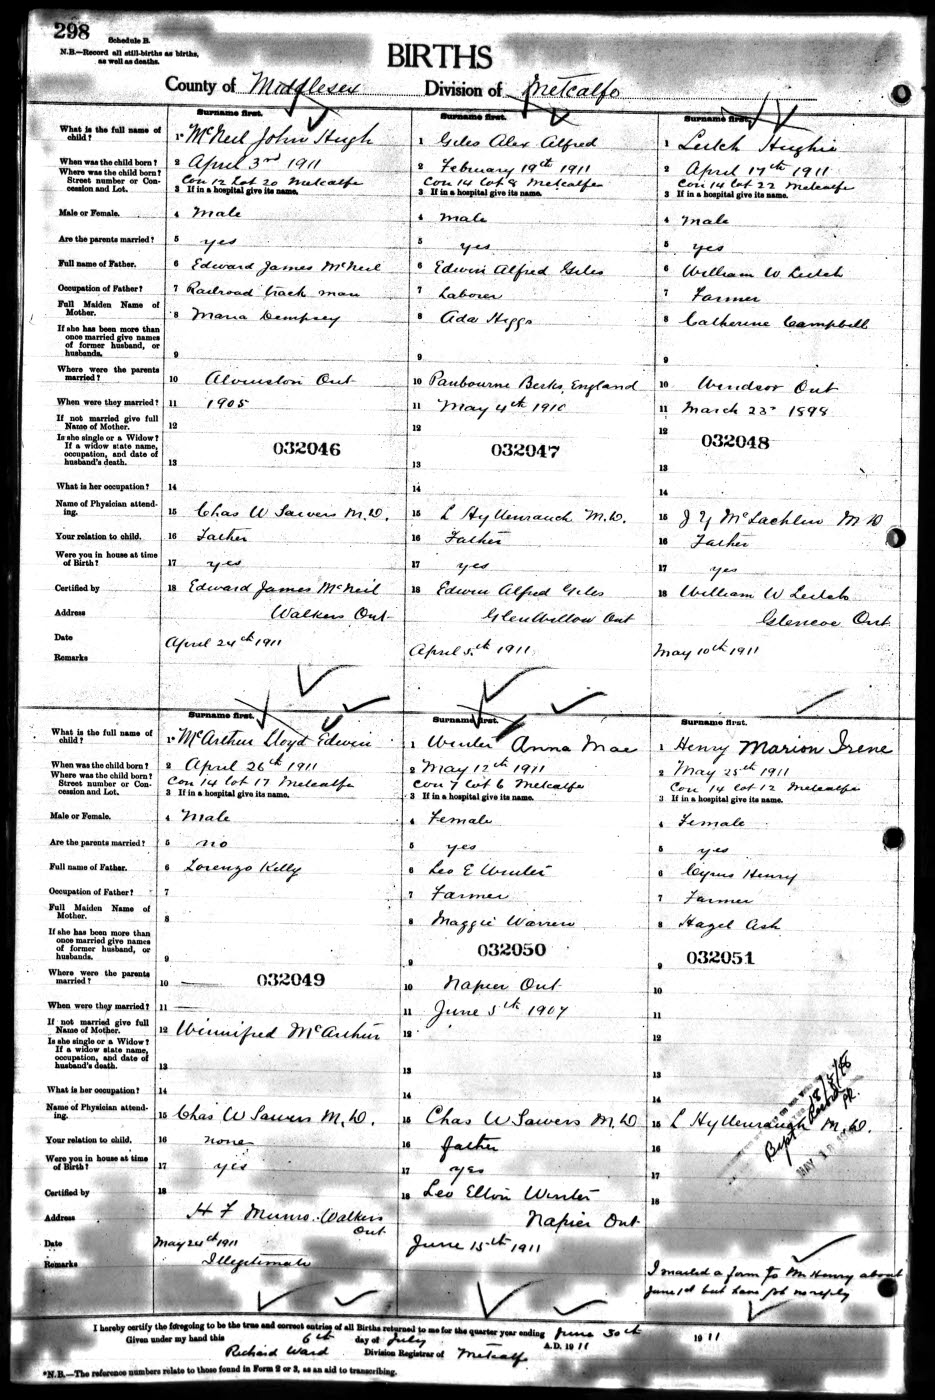 298
Schedule B.
N.B.—Record all still-births as births,
as well as deaths.
BIRTHS
County of Middlesex Division of Metcalfe
Surname first. Surname first. Surname first.
What is the full name of child? 1* McNeil John Hugh 1 Giles Alex Alfred 1 Leitch Hughie
When was the child born? 2 April 3rd 1911 2 February 19th 1911 2 April 17th 1911
Where was the child born? Street number or Concession and Lot. Con 12 Lot 20 Metcalfe Con 14 lot 8 Metcalfe Con 14 lot 22 Metcalfe
3 If in a hospital give its name. 3 If in a hospital give its name. 3 If in a hospital give its name.
Male or Female. 4 Male 4 male 4 male
Are the parents married? 5 yes 5 yes 5 yes
Full name of Father. 6 Edward James McNeil 6 Edwin Alfred Giles 6 William W Leitch
Occupation of Father? 7 Railroad track man 7 Laborer 7 Farmer
Full Maiden Name of Mother. 8 Maria Dempsey 8 Ada Higgs 8 Catherine Campbell
If she has been more than once married give names of former husband, or husbands. 9 9 9
Where were the parents married? 10 Alvinston Ont 10 Panbourne Berks, England 10 Windsor Ont
When were they married? 11 1905 11 May 4th 1910 11 March 23rd 1898
If not married give full Name of Mother. 12 12 12
032046 032047 032048
Is she single or a Widow? If a widow state name, occupation, and date of husband's death. 13 13 13
What is her occupation? 14 14 14
Name of Physician attending. 15 Chas W Sawers M.D. 15 L Hyttenrauch M.D. 15 J Y McLachlin M D
Your relation to child. 16 Father 16 Father 16 Father
Were you in house at time of Birth? 17 yes 17 yes 17 yes
Certified by 18 Edward James McNeil 18 Edwin Alfred Giles 18 William W Leitch
Address Walkers Ont Glen Willow Ont Glencoe Ont
Date April 24th 1911 April 5th 1911 May 10th 1911
Remarks
Surname first. Surname first. Surname first.
What is the full name of child? 1* McArthur Lloyd Edwin 1 Winter Anna Mae 1 Henry Marion Irene
When was the child born? 2 April 26th 1911 2 May 12th 1911 2 May 25th 1911
Where was the child born? Street number or Concession and Lot. Con 14 lot 17 Metcalfe Con 7 lot 6 Metcalfe Con 14 lot 12 Metcalfe
3 If in a hospital give its name. 3 If in a hospital give its name. 3 If in a hospital give its name.
Male or Female. 4 Male 4 Female 4 Female
Are the parents married? 5 no 5 yes 5 yes
Full name of Father. 6 Lorenzo Kelly 6 Leo E Winter 6 Cyrus Henry
Occupation of Father? 7 7 Farmer 7 Farmer
Full Maiden Name of Mother. 8 8 Maggie Warren 8 Hazel Ash
If she has been more than once married give names of former husband, or husbands. 9 9 9
032049 032050 032051
Where were the parents married? 10 10 Napier Ont 10
When were they married? 11 11 June 5th 1907 11
If not married give full Name of Mother. 12 Winnifred McArthur 12 12
Is she single or a Widow? If a widow state name, occupation, and date of husband's death. 13 13 13
What is her occupation? 14 14 14
Name of Physician attending. 15 Chas W Sawers M.D. 15 Chas W Sawers M D 15 L Hyttenrauch M.D.
Your relation to child. 16 none 16 father 16
Were you in house at time of Birth? 17 yes 17 yes 17
Certified by 18 18 Leo Elton Winter 18
Address H F Munro. Walkers Ont Napier Ont
Date May 24th 1911 June 15th 1911
Remarks Illegitimate I mailed a form to Mr Henry about
June 1st but have got no reply
I hereby certify the foregoing to be the true and correct entries of all Births returned to me for the quarter year ending June 30th 1911
Given under my hand this 6th day of July A.D. 1911
Richard Ward Division Registrar of Metcalfe
*N.B.—The reference numbers relate to those found in Form 2 or 3, as an aid to transcribing.